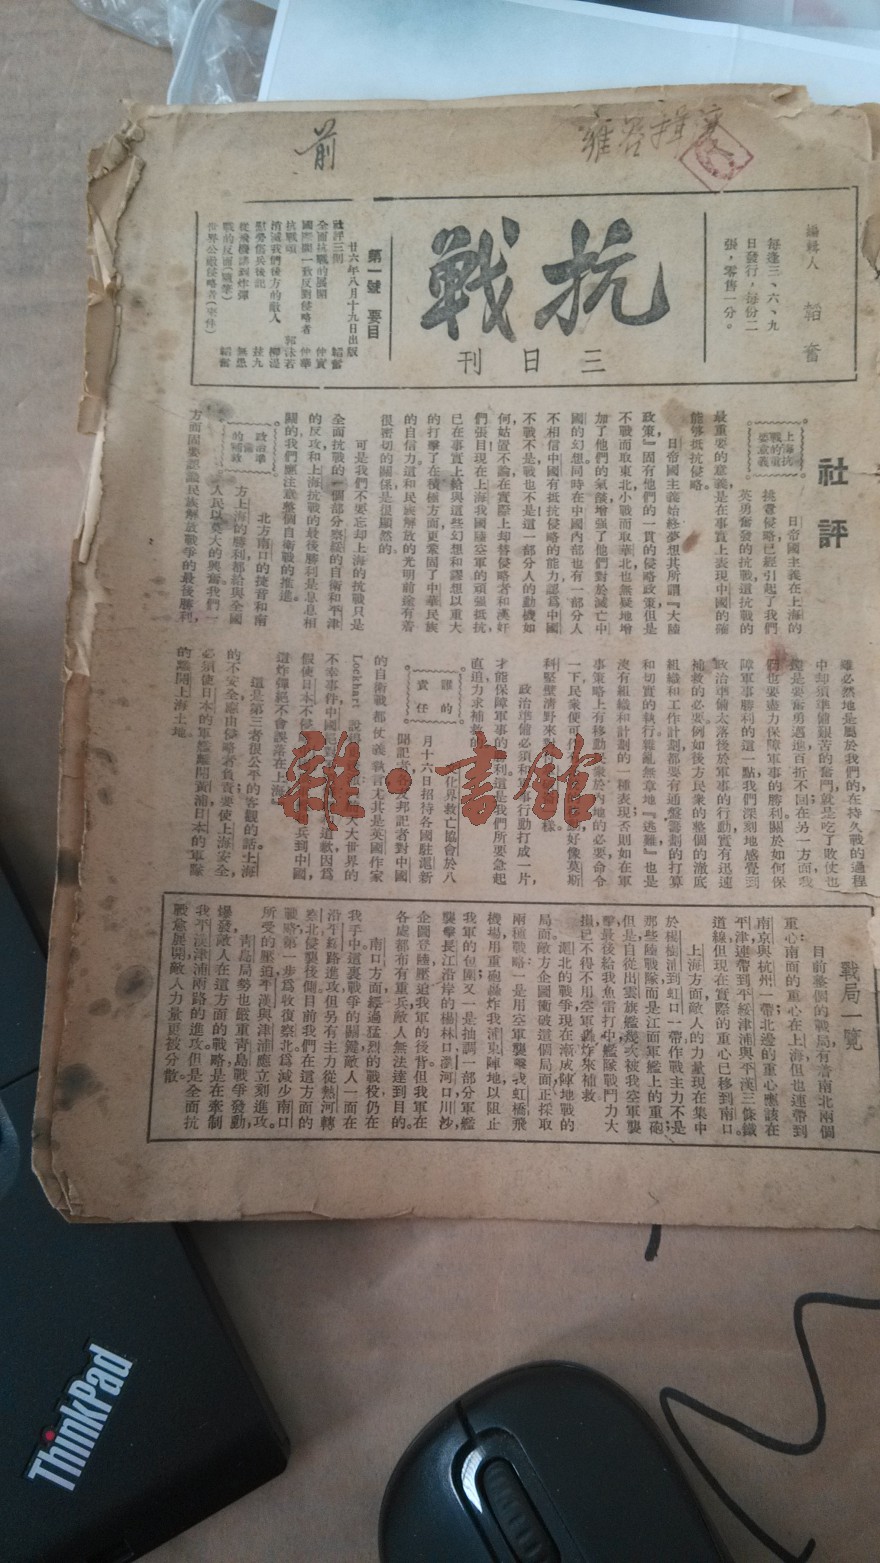 前
編輯人 韜奮
每逢三、六、九
日發行，每份二
張，零售一分。
抗戰
三日刊
第一號 要目
廿六年八月十九日出版
社評三則 韜奮
全面抗戰的展開 仲實
國際間一致反對侵略者 仲華
抗戰頌 郭沫若
消滅我們後方的敵人 柳湜
慰勞傷兵後記
從飛機講到炸彈 無愚
戰的反面 韜奮
世界公敵侵略者
社評
上海抗
戰的重
要意義
日帝國主義在上海的
挑釁侵略已經引起了我們
英勇奮發的抗戰這抗戰的
最重要的意義是在事實上表現中國的確
能够抵抗侵略。
日帝國主義始終夢想其所謂『大陸
政策』固有他們的一貫的侵略政策但是
不戰而取東北小戰而取華北也無疑地增
加了他們的氣燄增强了他們對於滅亡中
國的幻想同時在中國內部也有一部分人
不相信中國有抵抗侵略的能力認爲中國
不戰不是戰也不是這一部分人的動機如
何姑置不論在實際上却替侵略者和漢奸
們張目現在上海我國陸空軍的頑强抵抗
已在事實上給與這些幻想和謬想以重大
的打擊了在積極方面更鞏固了中華民族
的自信力這和民族解放的光明前途有着
很密切的關係是很顯然的。
可是我們不要忘却上海的抗戰只是
全面抗戰的一個部分察綏的自衞和平津
的反攻和上海抗戰的最後勝利是息息相
關的我們應注意整個自衞戰的推進。
政治準
備
的補救
北方南口的捷音和南
方上海的勝利都給與全國
人民以莫大的興奮我們一
方面固要認識民族解放戰爭的最後勝利，
雖必然地是屬於我們的，在持久戰的過程
中却須準備艱苦的奮鬥，就是吃了敗仗也
還是要奮勇邁進，百折不回，在另一方面我
們也要盡力保障軍事的勝利。關於如何保
障軍事勝利的這一點，我們深刻地感覺到
政治準備太落後於軍事的行動，實有迅速
補救的必要。例如後方民衆的整個的澈底
組織和工作計劃，都要有通盤籌劃的打算
和切實的執行，雜亂無章地『逃難』也是
沒有組織和計劃的一種表現，否則如在軍
事策略上有移動民衆於內地的必要，命令
一下，民衆便可
科堅壁清野來對
政治準備必須和軍事行動打成一片，
才能保障軍事的勝利，這是我們所要急起
直追力求補救的
誰的
責任
化界救亡協會於八
月十六日招待各國駐滬新
聞記者
的自衞戰都仗義執言尤其是英國作家
Lockhart
這炸彈絕不會誤落在上海』
這是第三者很公平的客觀的話，上海
的不安全應由侵略者負責，要使上海安全，
必須使日本的軍艦離開黃浦，日本的軍隊
離開上海土地。
戰局一覽
目前整個的戰局，有着南北兩個
重心，南面的重心在上海，但也連帶到
南京與杭州一帶；北邊的重心應該在
平津，連帶到平綏津浦與平漢三條鐵
道線，但現在實際的重心已移到南口。
上海方面，敵人的力量現在集中
於楊樹浦到虹口一帶，作戰主力不是
那些陸戰隊，而是江面軍艦上的重砲；
但是自從出雲旗艦幾次被我空軍襲
擊，最後給我魚雷打中，艦隊戰鬥力大
損，已不得不用空軍轟炸來補救。
滬北的戰爭，現在漸成陣地戰的
局面，敵方企圖衝破這個局面，正採取
兩種戰略：一是用空軍襲擊我虹橋飛
機場，用重砲轟炸我浦東陣地，以阻止
我軍的包圍；又一是抽調一部分軍艦
襲擊長江沿岸的楊林口，瀏河口，川沙，
企圖登陸，壓迫我軍的後背，但我軍在
各處都布有重兵，敵人無法達到目的。
南口方面，經過猛烈的戰役，仍在
我手中，這裏戰爭的關鍵，敵人一面在
沿平綏路進攻，但另有主力從熱河轉
察北侵襲後側，目前我們在這方面的
戰略，第一步爲收復察北，爲減少南口
所受的壓迫，平漢與津浦應立刻進攻。
青島局勢也嚴重，青島戰爭發動，
爆發，敵人在這方面的戰略，是在牽制
我平漢津浦兩路的進攻，但是全面抗
戰愈展開，敵人力量更被分散。
雜·書館
ThinkPad